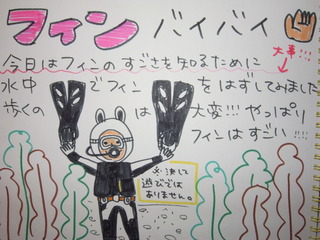 フィン バイバイ
今日はフィンのすごさを知るために
大事!!!
水中でフィンをはずしてみました
歩くのは大変!!!やっぱり
フィンはすごい!!!
※決して
遊びでは
ありません。